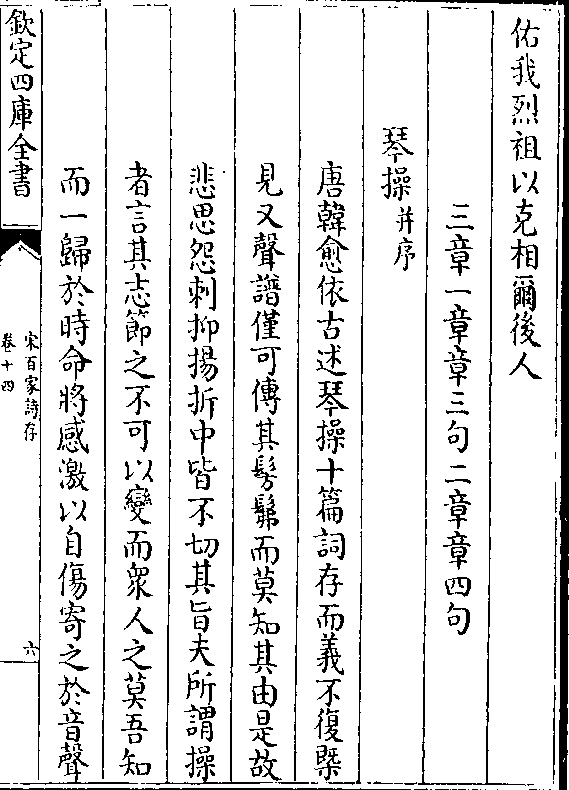 佑我烈祖以克相爾後人
三章一章章三句二章章四句
琴操并序
唐韓愈依古述琴操十篇詞存而義不復槩
見又聲譜僅可傳其髣髴而莫知其由是故
悲思怨刺抑揚折中皆不切其旨夫所謂操
者言其志節之不可以變而衆人之莫吾知
而一歸於時命將感激以自傷寄之於音聲
欽定四庫全書
宋百家詩存
卷十四
六